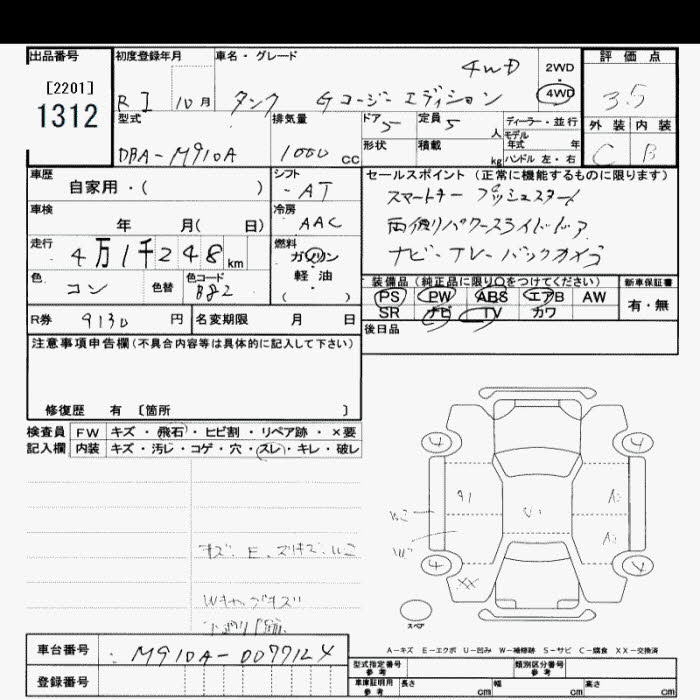 出品番号
[2201]
1312
初度登録年月
R I 10月
車名・グレード
タンク G コージーエディション 4WD
2WD
・
4WD
評価点
3.5
外装 内装
C B
型式
DBA-M910A
排気量
1000 cc
ドア 5
定員 5 人
形状
積載 kg
ディーラー・並行
モデル年式 年
ハンドル 左・右
車歴
自家用・( )
シフト
AT
車検
年 月( 日)
冷房
AAC
走行
4万1千248 km
燃料
ガソリン
軽油
( )
色
コン
色替
色コード
B82
セールスポイント(正常に機能するものに限ります)
スマートキー プッシュスタート
両側パワースライドドア
ナビ・TV・バックカメラ
装備品(純正品に限り○をつけてください)
PS PW ABS エアB AW
SR ナビ TV カワ
新車保証書
有・無
R券 9130 円
名変期限 月 日
後日品
注意事項申告欄(不具合内容等は具体的に記入して下さい)
修復歴 有 〔箇所 〕
検査員記入欄
FW キズ・飛石・ヒビ割・リペア跡・×要
内装 キズ・汚じ・コゲ・穴・スレ・キレ・破レ
キズ、E、スリキズ
4 4
A1
U1
4
XX
スペア
A-キズ E-エクボ U-凹み W-補修跡 S-サビ C-腐食 XX-交換済
車台番号
登録番号
型式指定番号 参考
類別区分番号 参考
車庫証明用 参考
長さ cm 幅 cm 高さ cm